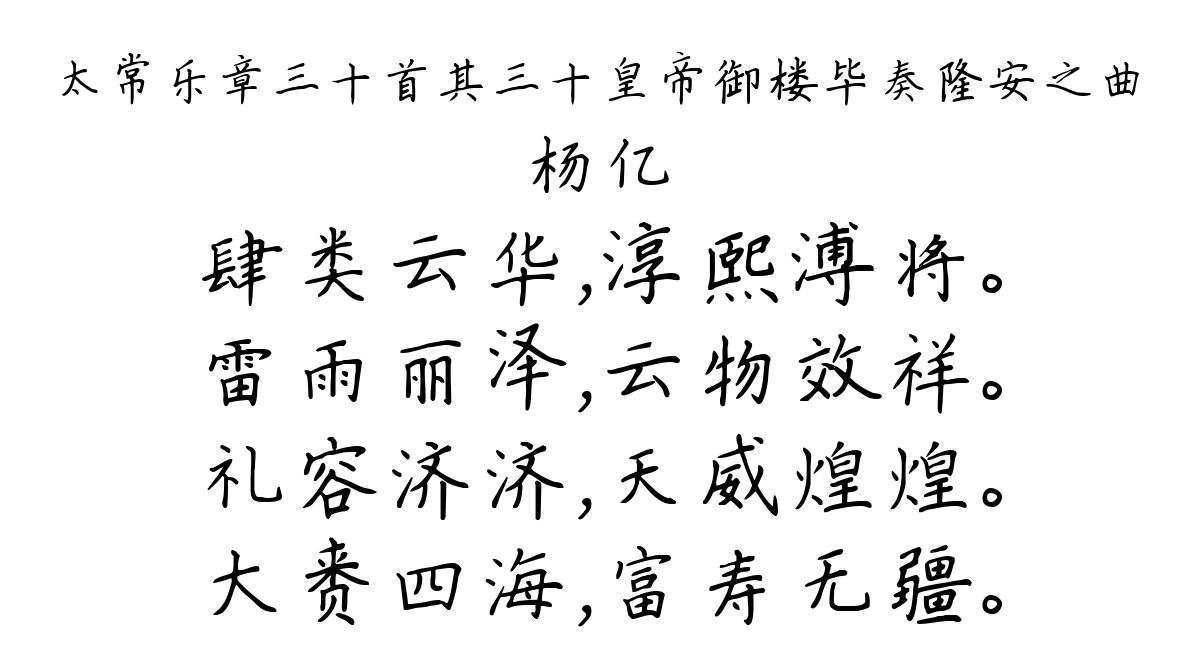 太常乐章三十首其三十皇帝御楼毕奏隆安之曲
杨亿
肆类云华,淳熙溥将。
雷雨丽泽,云物效祥。
礼容济济,天威煌煌。
大赉四海,富寿无疆。